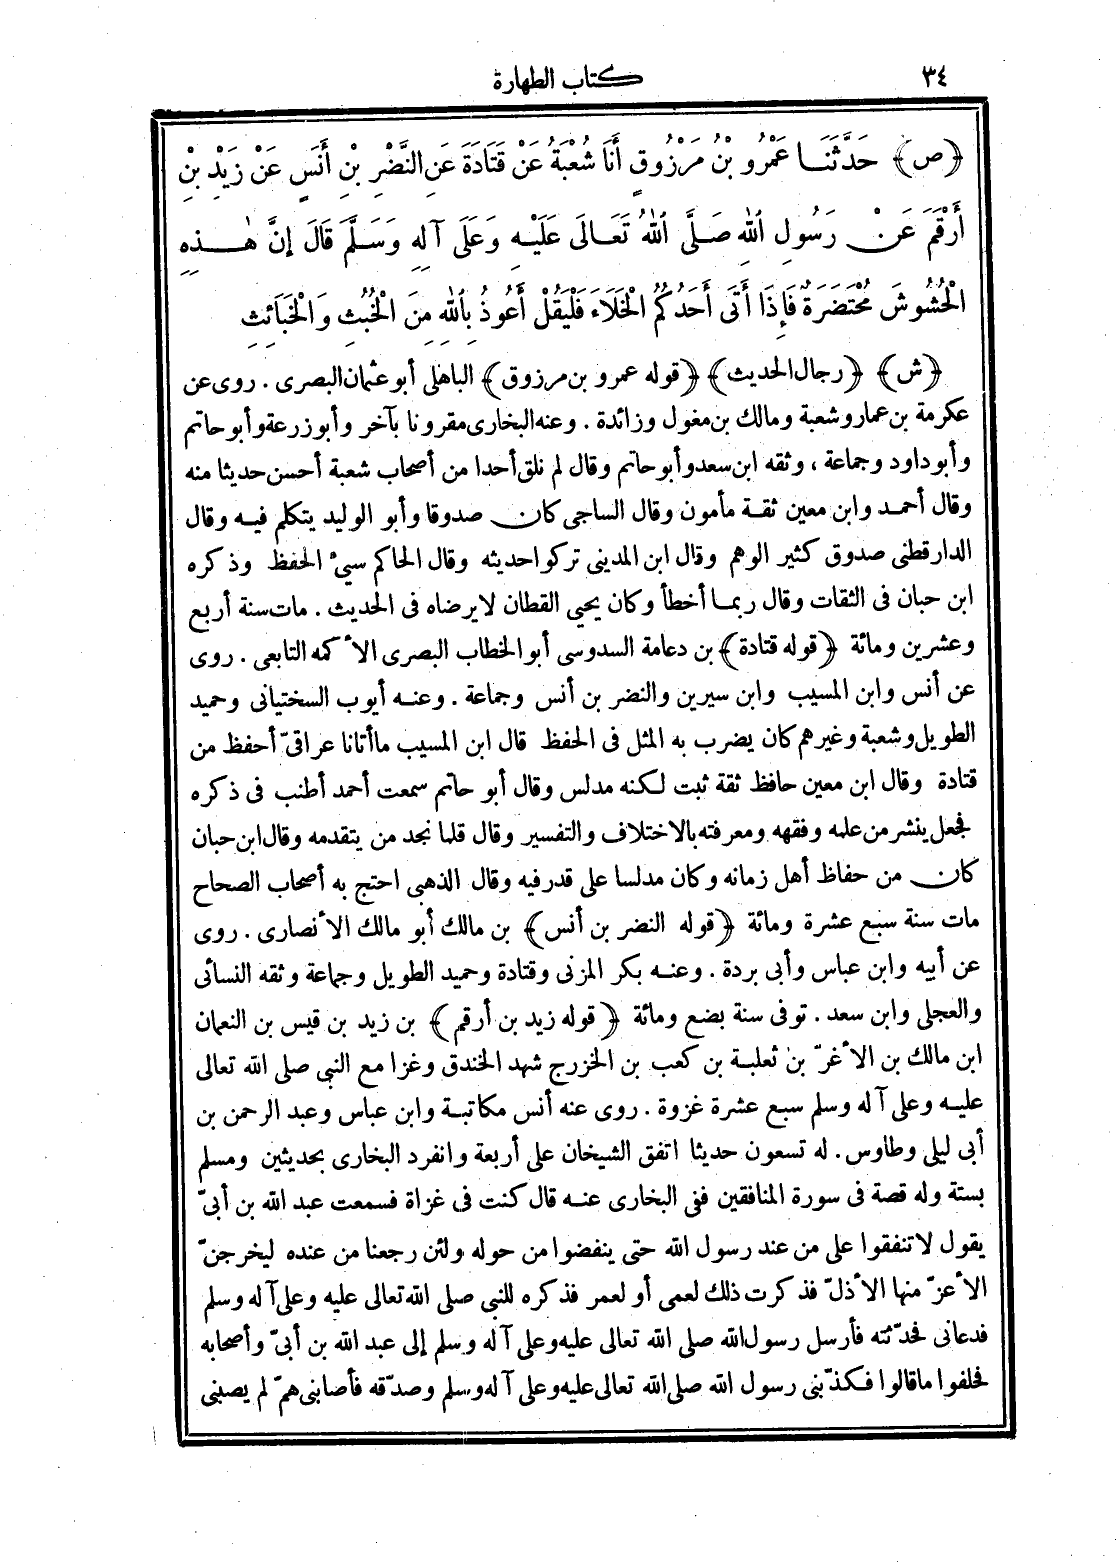 ٣٤
كتاب الطهارة
﴿ص﴾ حَدَّثَنَا عَمْرُو بْنُ مَرْزُوقٍ أَنَا شُعْبَةُ عَنْ قَتَادَةَ عَنِ النَّضْرِ بْنِ أَنَسٍ عَنْ زَيْدِ بْنِ
أَرْقَمَ عَنْ رَسُولِ اللهِ صَلَّى اللهُ تَعَالَى عَلَيْهِ وَعَلَى آلِهِ وَسَلَّمَ قَالَ إِنَّ هٰذِهِ
الْحُشُوشَ مُحْتَضَرَةٌ فَإِذَا أَتَى أَحَدُكُمُ الْخَلَاءَ فَلْيَقُلْ أَعُوذُ بِاللهِ مِنَ الْخُبُثِ وَالْخَبَائِثِ
﴿ش﴾ ﴿رجال الحديث﴾ ﴿قوله عمرو بن مرزوق﴾ الباهلى أبو عثمان البصرى . روى عن
عكرمة بن عمار وشعبة ومالك بن مغول وزائدة . وعنه البخارى مقرونا بآخر وأبو زرعة وأبو حاتم
وأبو داود وجماعة ، وثقه ابن سعد وأبو حاتم وقال لم نلق أحدا من أصحاب شعبة أحسن حديثا منه
وقال أحمد وابن معين ثقة مأمون وقال الساجى كان صدوقا وأبو الوليد يتكلم فيه وقال
الدارقطنى صدوق كثير الوهم وقال ابن المدينى تركوا حديثه وقال الحاكم سيئ الحفظ وذكره
ابن حبان فى الثقات وقال ربما أخطأ وكان يحيى القطان لا يرضاه فى الحديث . مات سنة أربع
وعشرين ومائة ﴿قوله قتادة﴾ بن دعامة السدوسى أبو الخطاب البصرى الأكمه التابعى . روى
عن أنس وابن المسيب وابن سيرين والنضر بن أنس وجماعة . وعنه أيوب السختيانى وحميد
الطويل وشعبة وغيرهم كان يضرب به المثل فى الحفظ قال ابن المسيب ما أتانا عراقىّ أحفظ من
قتادة وقال ابن معين حافظ ثقة ثبت لكنه مدلس وقال أبو حاتم سمعت أحمد أطنب فى ذكره
فجعل ينشر من علمه وفقهه ومعرفته بالاختلاف والتفسير وقال قلما نجد من يتقدمه وقال ابن حبان
كان من حفاظ أهل زمانه وكان مدلسا على قدر فيه وقال الذهبى احتج به أصحاب الصحاح
مات سنة سبع عشرة ومائة ﴿قوله النضر بن أنس﴾ بن مالك أبو مالك الأنصارى . روى
عن أبيه وابن عباس وأبى بردة . وعنه بكر المزنى وقتادة وحميد الطويل وجماعة وثقه النسائى
والعجلى وابن سعد . توفى سنة بضع ومائة ﴿قوله زيد بن أرقم﴾ بن زيد بن قيس بن النعمان
ابن مالك بن الأغرّ بن ثعلبة بن كعب بن الخزرج شهد الخندق وغزا مع النبى صلى الله تعالى
عليه وعلى آله وسلم سبع عشرة غزوة . روى عنه أنس مكاتبة وابن عباس وعبد الرحمن بن
أبى ليلى وطاوس . له تسعون حديثا اتفق الشيخان على أربعة وانفرد البخارى بحديثين ومسلم
بستة وله قصة فى سورة المنافقين ففى البخارى عنه قال كنت فى غزاة فسمعت عبد الله بن أبىّ
يقول لا تنفقوا على من عند رسول الله حتى ينفضوا من حوله ولئن رجعنا من عنده ليخرجنّ
الأعزّ منها الأذلّ فذكرت ذلك لعمى أو لعمر فذكره للنبى صلى الله تعالى عليه وعلى آله وسلم
فدعانى فحدّثته فأرسل رسول الله صلى الله تعالى عليه وعلى آله وسلم إلى عبد الله بن أبىّ وأصحابه
فحلفوا ما قالوا فكذّبنى رسول الله صلى الله تعالى عليه وعلى آله وسلم وصدّقه فأصابنى همّ لم يصبنى